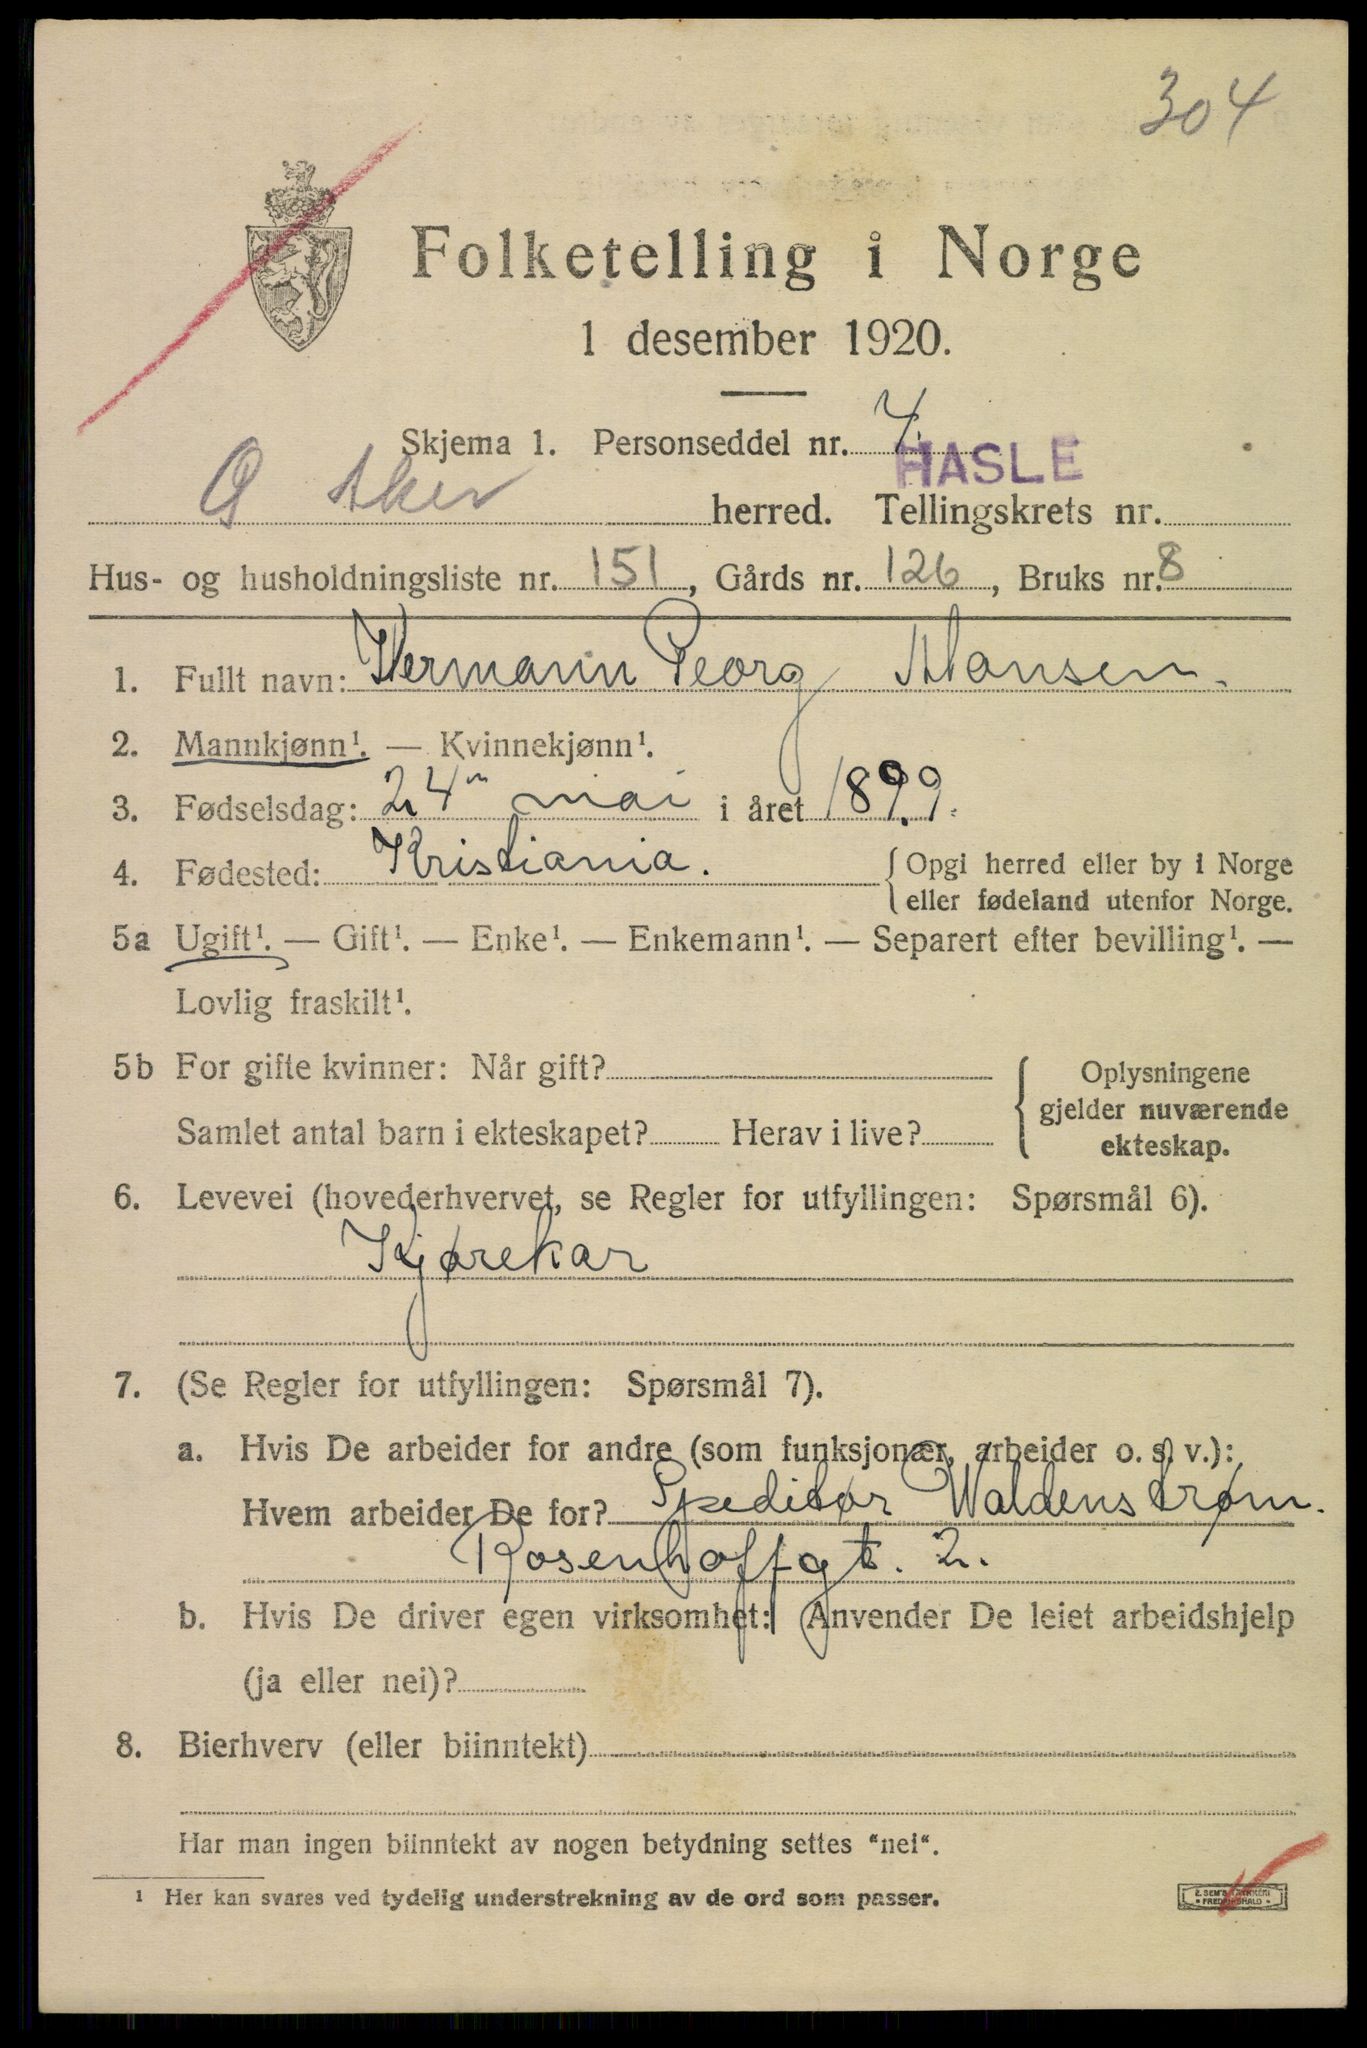 304
Folketelling i Norge
1 desember 1920.
Skjema 1. Personseddel nr. 4.
HASLE
Ø Aker herred. Tellingskrets nr.
Hus- og husholdningsliste nr. 151, Gårds nr. 126, Bruks nr. 8
1. Fullt navn: Hermann Georg Hansen.
2. Mannkjønn¹. — Kvinnekjønn¹.
3. Fødselsdag: 24 mai i året 1899.
4. Fødested: Kristiania. { Opgi herred eller by i Norge
eller fødeland utenfor Norge.
5a Ugift¹. — Gift¹. — Enke¹. — Enkemann¹. — Separert efter bevilling¹. —
Lovlig fraskilt¹.
5b For gifte kvinner: Når gift?
Samlet antal barn i ekteskapet? Herav i live?
{ Oplysningene
gjelder nuværende
ekteskap.
6. Levevei (hovederhvervet, se Regler for utfyllingen: Spørsmål 6).
Kjørekar
7. (Se Regler for utfyllingen: Spørsmål 7).
a. Hvis De arbeider for andre (som funksjonær, arbeider o. s. v.):
Hvem arbeider De for? Speditør Waldenstrøm.
Rosenhoffgt. 2.
b. Hvis De driver egen virksomhet: Anvender De leiet arbeidshjelp
(ja eller nei)?
8. Bierhverv (eller biinntekt)
Har man ingen biinntekt av nogen betydning settes “nei“.
¹ Her kan svares ved tydelig understrekning av de ord som passer.